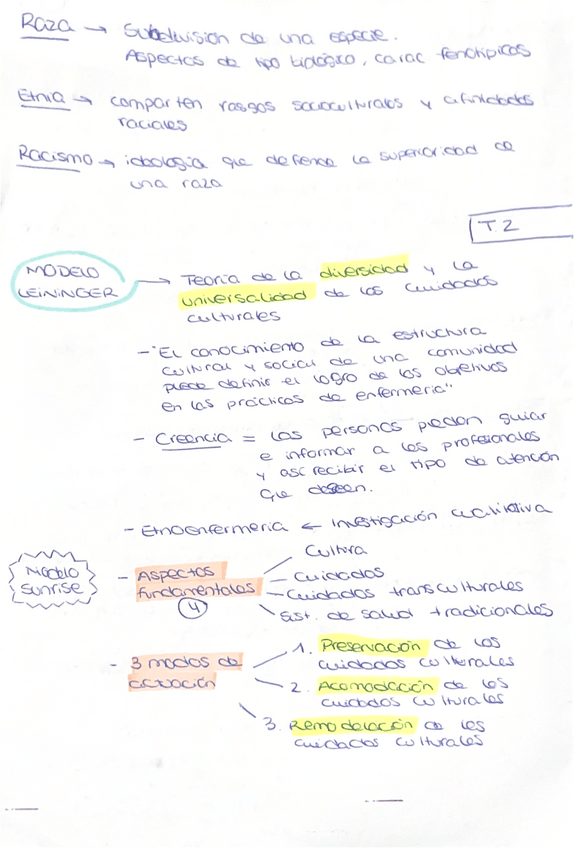 Raza → Subdivisión de una especie.
Aspectos de tipo biológico, carac fenotípicos
Etnia → comparten rasgos socioculturales y afinidades
raciales
Racismo → ideología que defiende la superioridad de
una raza
T.2
MODELO
LEININGER
→ Teoría de la diversidad y la
universalidad de los cuidados
culturales
- "El conocimiento de la estructura
cultural y social de una comunidad
puede definir el logro de los objetivos
en las prácticas de enfermería"
- Creencia = las personas pueden guiar
e informar a los profesionales
y así recibir el tipo de atención
que deseen.
- Etnoenfermería ← Investigación cualitativa
Modelo
Sunrise
- Aspectos
fundamentales
4
Cultura
Cuidados
Cuidados transculturales
Sist. de salud tradicionales
- 3 modos de
actuación
1. Preservación de los
cuidados culturales
2. Acomodación de los
cuidados culturales
3. Remodelación de los
cuidados culturales